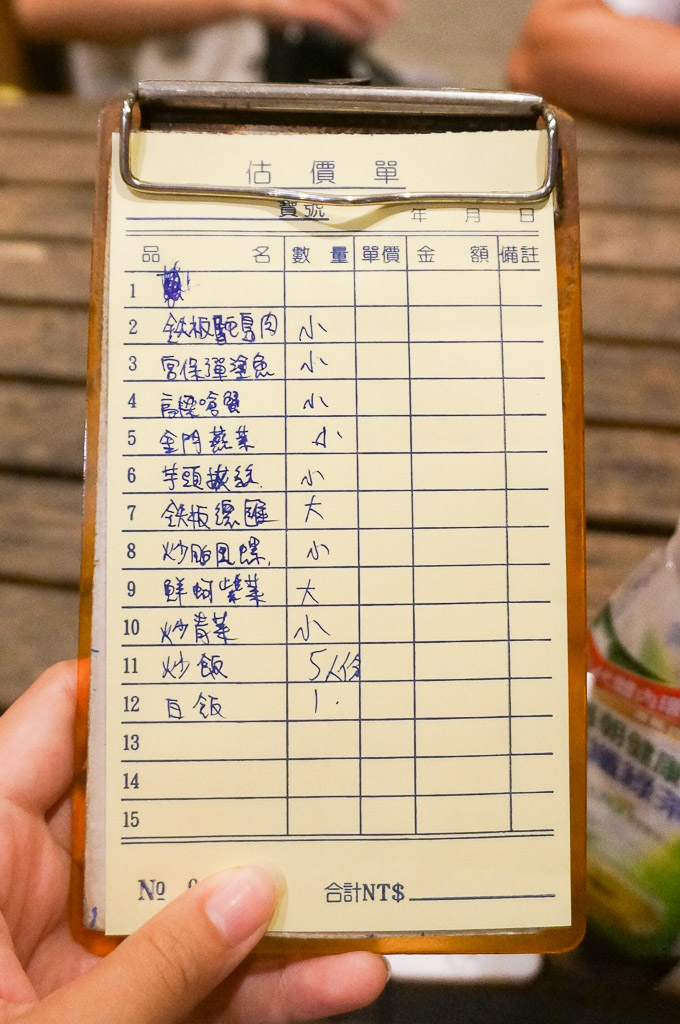 估價單
寶號 年 月 日
品名 數量 單價 金額 備註
1
2 鉄板鴕鳥肉 小
3 宮保彈塗魚 小
4 高粱嗆蟹 小
5 金門燕菜 小
6 芋頭拔絲 小
7 鉄板總匯 大
8 炒胎凤螺 小
9 鮮蚵紫菜 大
10 炒青菜 小
11 炒飯 5人份
12 白飯 1
13
14
15
№
合計NT$
朝健康
綠茶